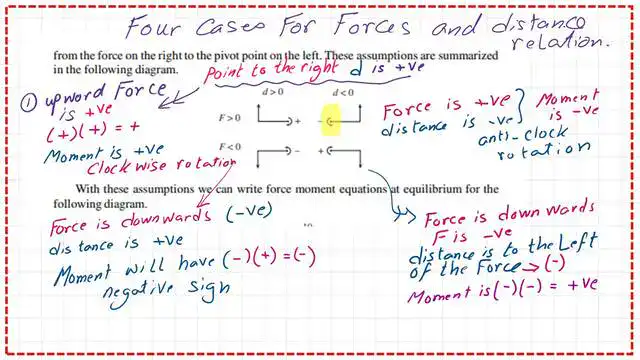 Four Cases For Forces and distance
relation.
from the force on the right to the pivot point on the left. These assumptions are summarized
in the following diagram.
Point to the right d is +ve
① upword Force
is +ve
(+)(+) = +
Moment is +ve
Clock wise rotation
d>0 d<0
F>0 + -
F<0 - +
Force is +ve
distance is -ve
Moment
is -ve
anti-clock
rotation
With these assumptions we can write force moment equations at equilibrium for the
following diagram.
Force is downwards (-ve)
distance is +ve
Moment will have (-)(+) = (-)
negative sign
Force is downwards
F is -ve
distance is to the Left
of the Force → (-)
Moment is (-)(-) = +ve